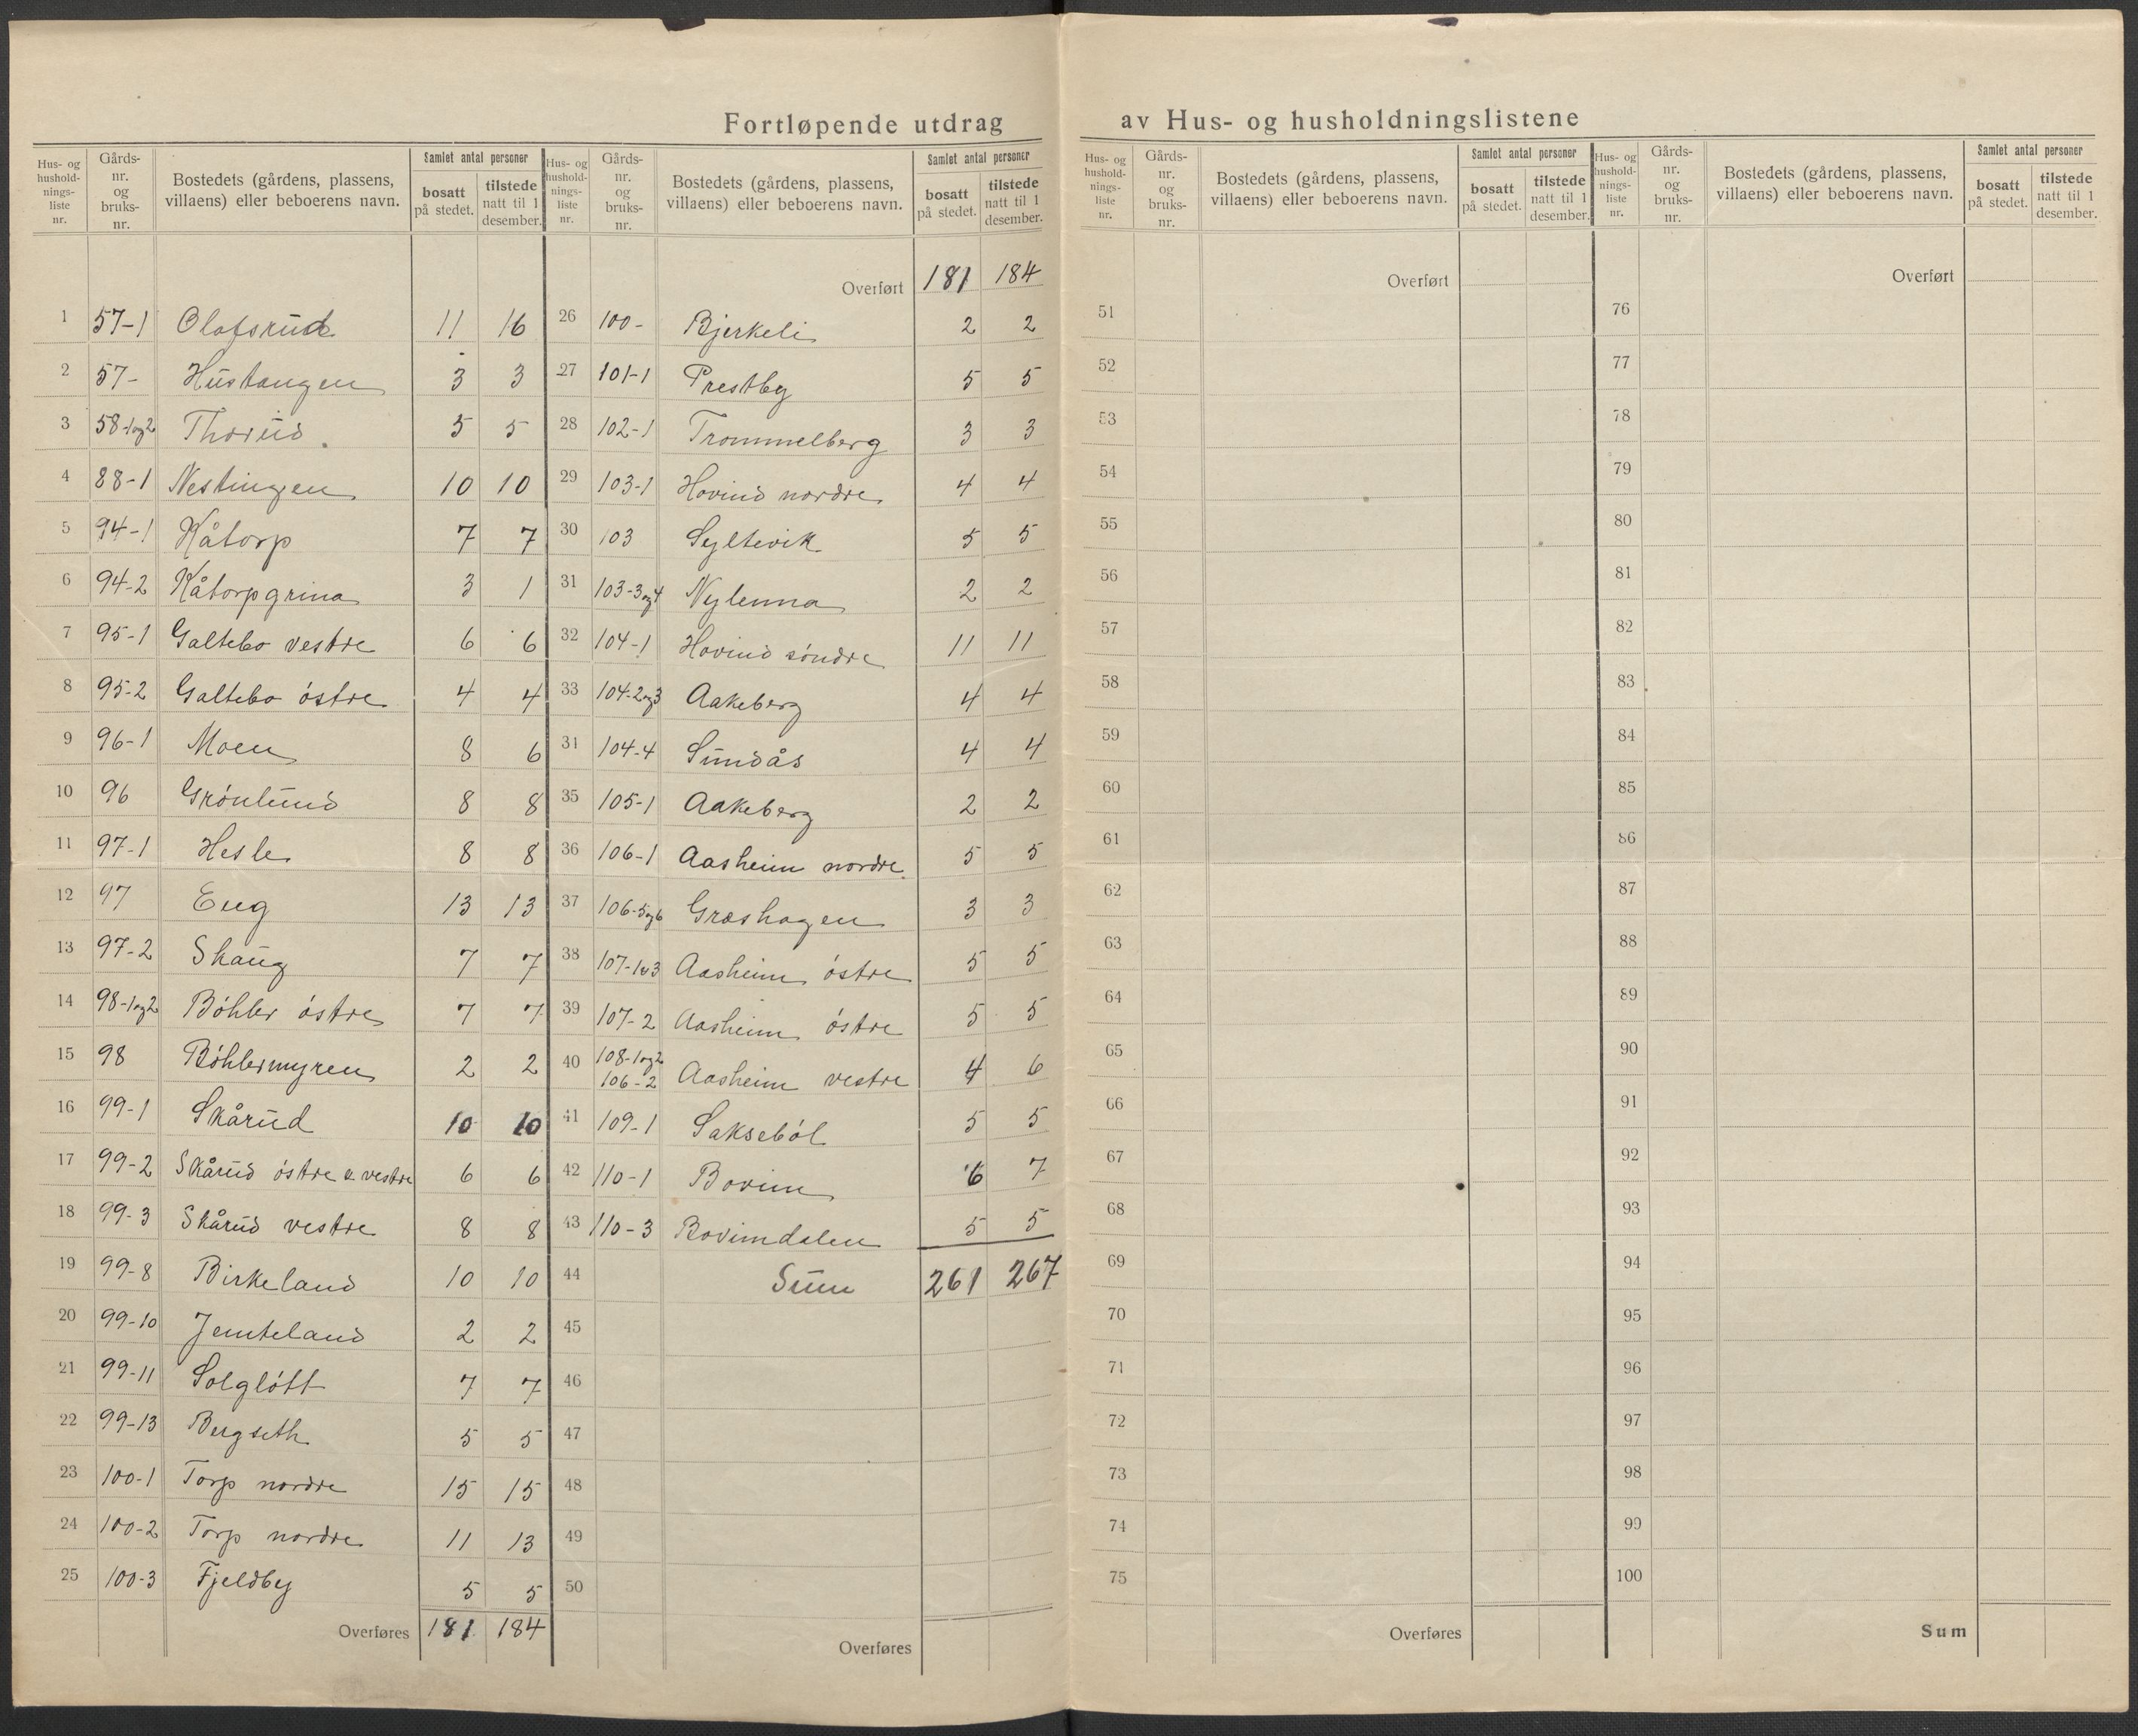 Fortløpende utdrag av Hus- og husholdningslistene
Hus- og hushold-nings-liste nr. | Gårds-nr. og bruks-nr. | Bostedets (gårdens, plassens, villaens) eller beboerens navn. | Samlet antal personer | bosatt på stedet. | tilstede natt til 1 desember.
1 57-1 Olafsrud 11 16
2 57- Hustangen 3 3
3 58-1og2 Thorud 5 5
4 88-1 Nestingen 10 10
5 94-1 Kåtorp 7 7
6 94-2 Kåtorpgrina 3 1
7 95-1 Galtebo vestre 6 6
8 95-2 Galtebo östre 4 4
9 96-1 Moen 8 6
10 96 Grönlund 8 8
11 97-1 Hesle 8 8
12 97 Eng 13 13
13 97-2 Skaug 7 7
14 98-1og2 Böhler östre 7 7
15 98 Böhlermyren 2 2
16 99-1 Skårud 10 10
17 99-2 Skårud östre & vestre 6 6
18 99-3 Skårud vestre 8 8
19 99-8 Birkeland 10 10
20 99-10 Jemteland 2 2
21 99-11 Solglött 7 7
22 99-13 Bergseth 5 5
23 100-1 Torp nordre 15 15
24 100-2 Torp nordre 11 13
25 100-3 Fjeldby 5 5
Overføres 181 184
Hus- og hushold-nings-liste nr. | Gårds-nr. og bruks-nr. | Bostedets (gårdens, plassens, villaens) eller beboerens navn. | Samlet antal personer | bosatt på stedet. | tilstede natt til 1 desember.
Overført 181 184
26 100- Bjerkeli 2 2
27 101-1 Prestby 5 5
28 102-1 Trommelberg 3 3
29 103-1 Hovind nordre 4 4
30 103 Syltevik 5 5
31 103-3og4 Nylenna 2 2
32 104-1 Hovind söndre 11 11
33 104-2og3 Aakeberg 4 4
34 104-4 Sundås 4 4
35 105-1 Aakeberg 2 2
36 106-1 Aasheim nordre 5 5
37 106-5og6 Græshagen 3 3
38 107-1&3 Aasheim östre 5 5
39 107-2 Aasheim östre 5 5
40 108-1og2 106-2 Aasheim vestre 4 6
41 109-1 Sakseböl 5 5
42 110-1 Bovim 6 7
43 110-3 Bovimdalen 5 5
44 Sum 261 267
45
46
47
48
49
50
Overføres
Hus- og hushold-nings-liste nr. | Gårds-nr. og bruks-nr. | Bostedets (gårdens, plassens, villaens) eller beboerens navn. | Samlet antal personer | bosatt på stedet. | tilstede natt til 1 desember.
Overført
51
52
53
54
55
56
57
58
59
60
61
62
63
64
65
66
67
68
69
70
71
72
73
74
75
Overføres
Hus- og hushold-nings-liste nr. | Gårds-nr. og bruks-nr. | Bostedets (gårdens, plassens, villaens) eller beboerens navn. | Samlet antal personer | bosatt på stedet. | tilstede natt til 1 desember.
Overført
76
77
78
79
80
81
82
83
84
85
86
87
88
89
90
91
92
93
94
95
96
97
98
99
100
Sum